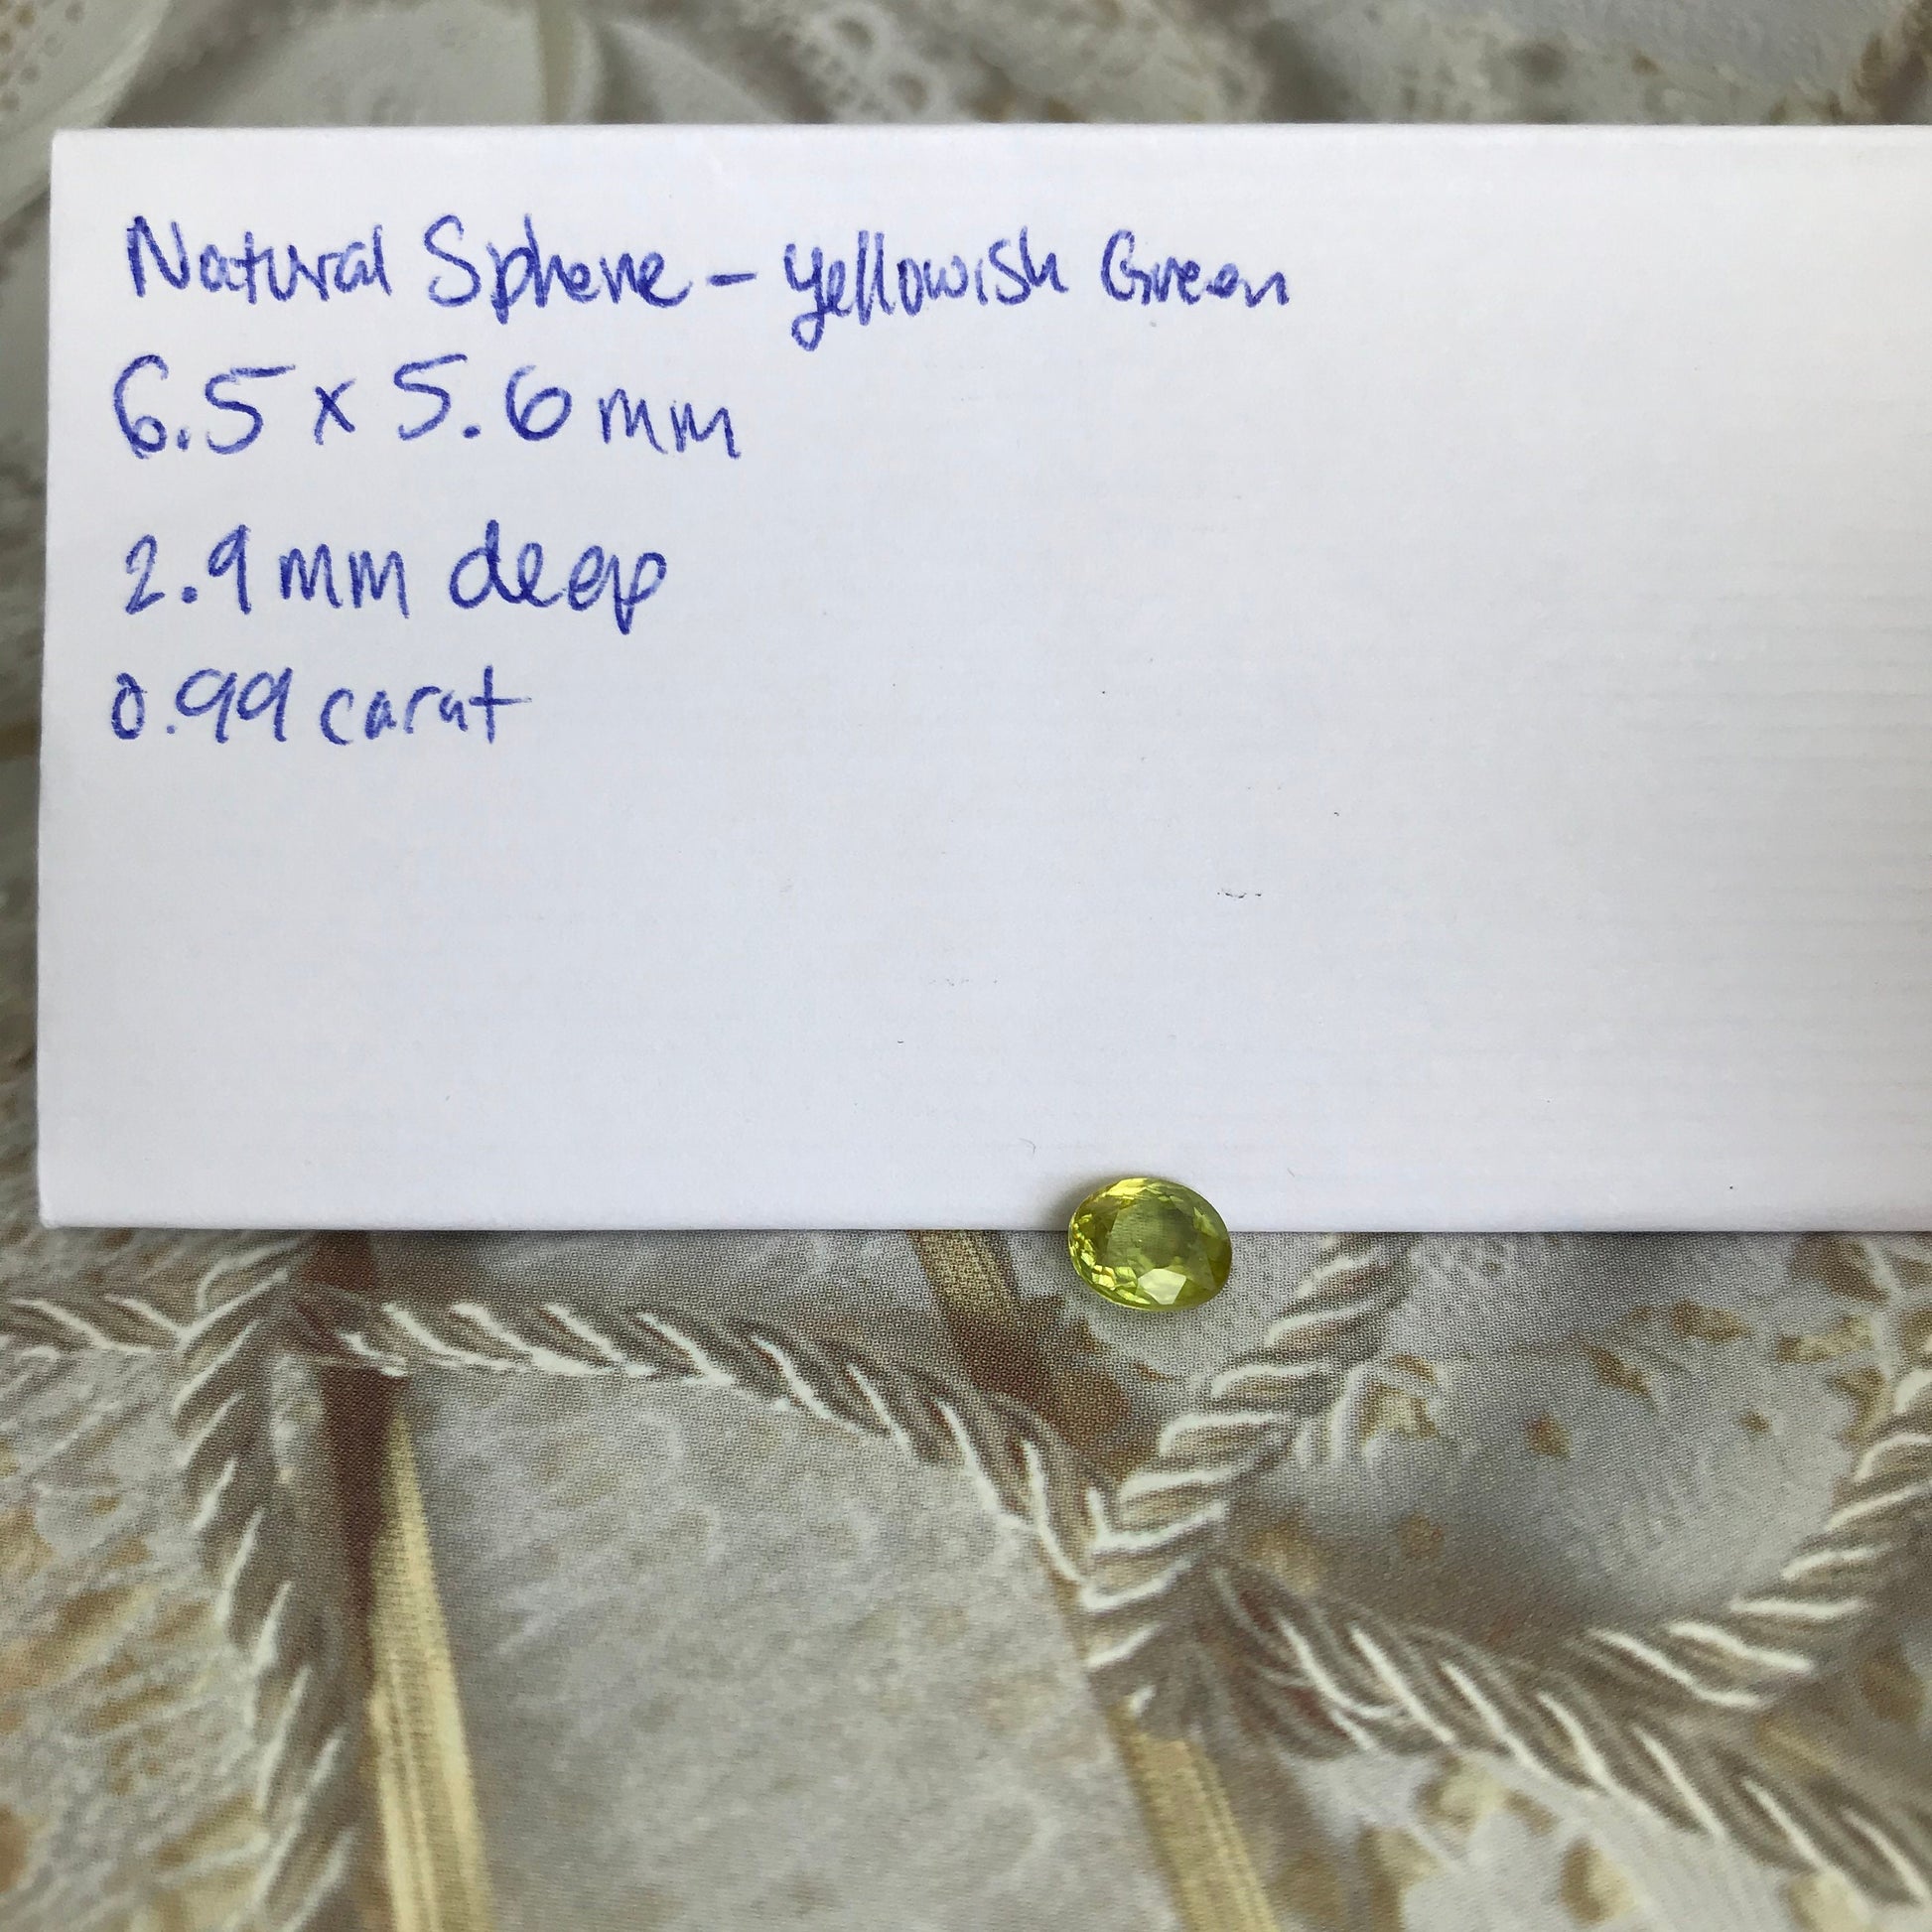 Natural Sphene - yellowish Green
6.5 x 5.6 mm
2.9 mm deep
0.99 carat